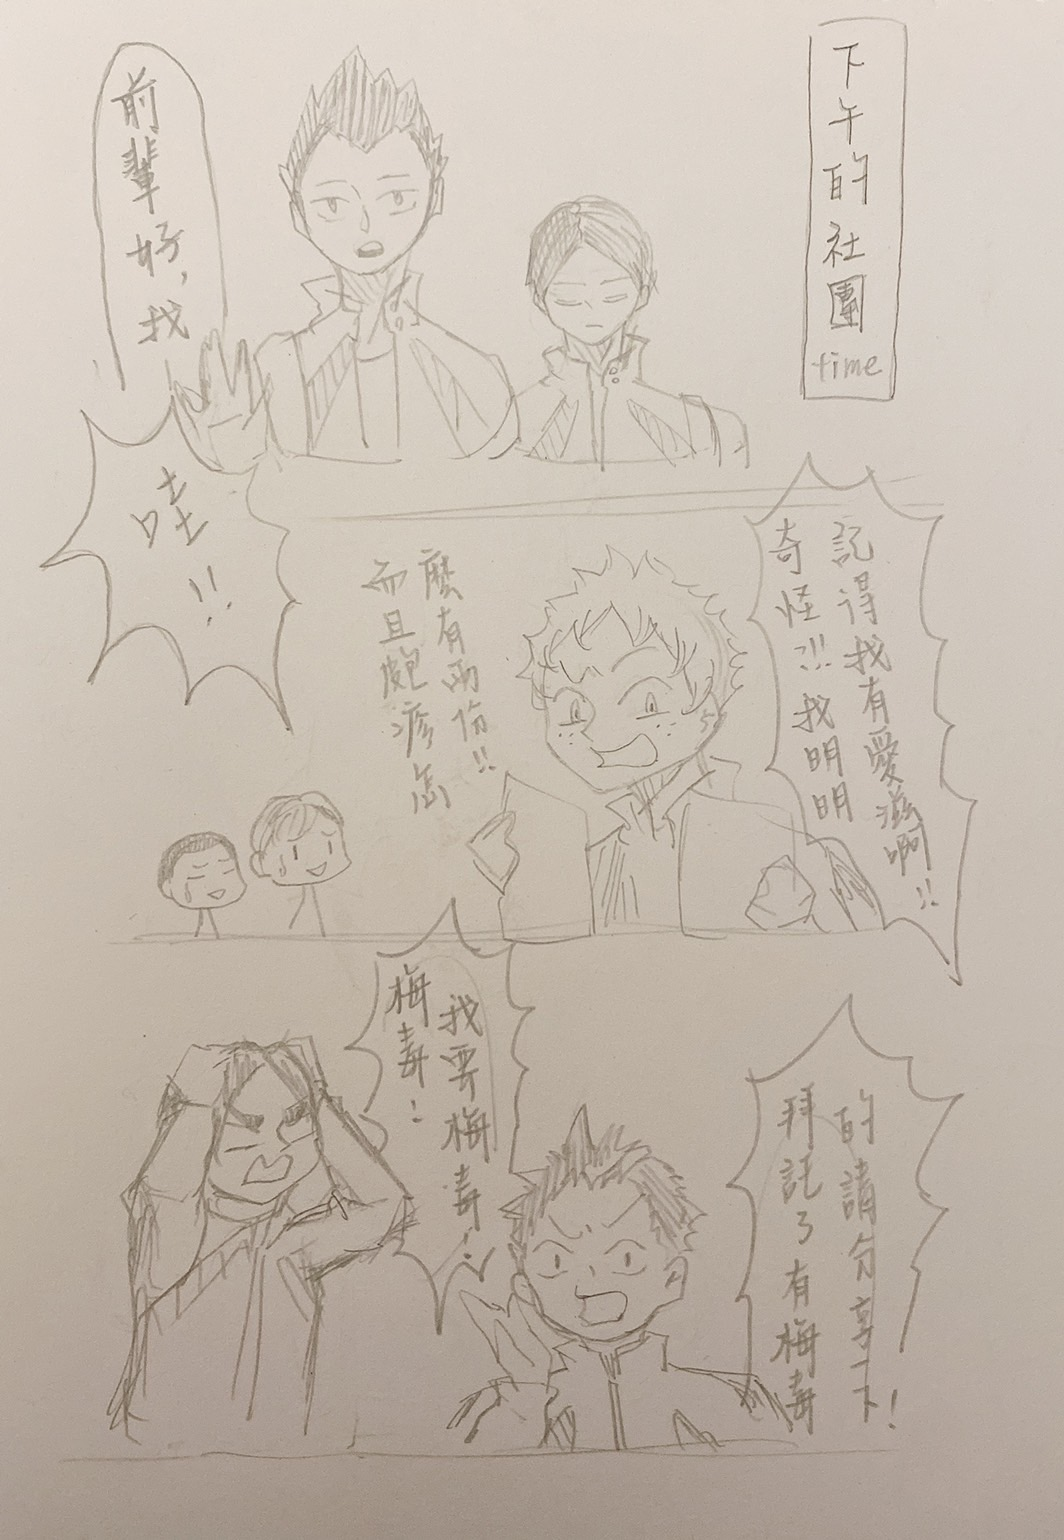 下午的社團time
前輩好,我
哇!!
奇怪!!!我明明
記得我有愛滋啊!!
而且皰疹怎
麼有兩份!!
拜託了有梅毒
的請分享一下!
梅毒!
我要梅毒!